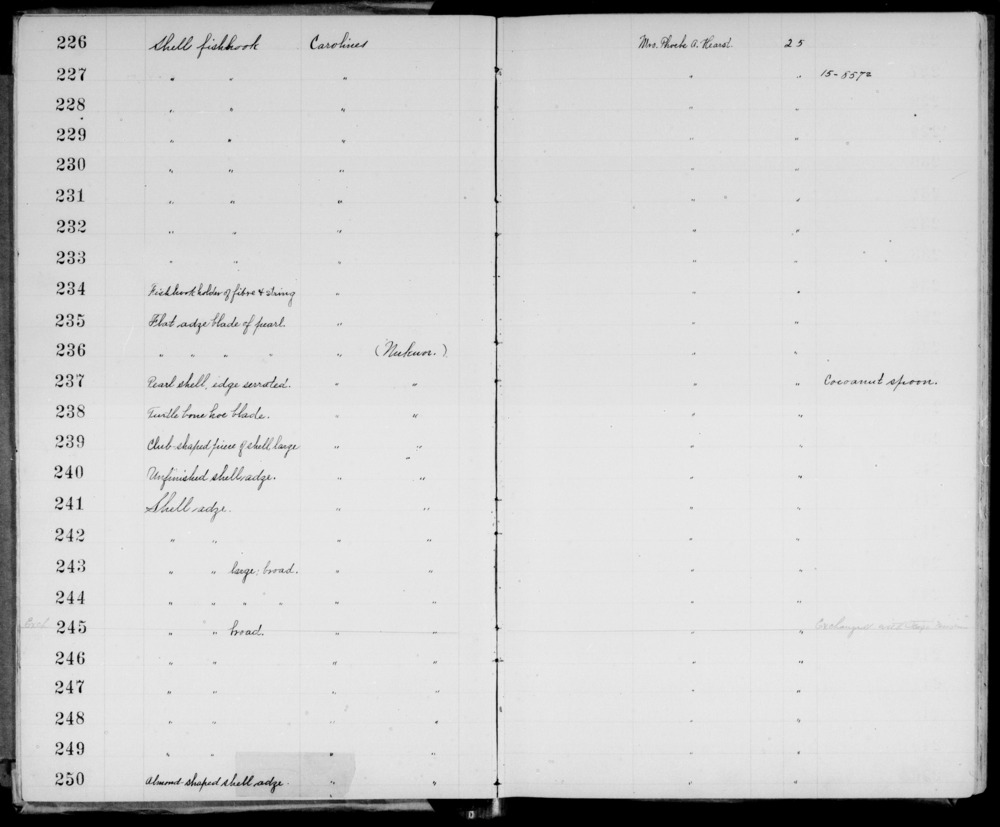 226 Shell fishhook Carolines Mrs. Phoebe A. Hearst. 25
227 " " " " " 15-5572
228 " " " " "
229 " " " " "
230 " " " " "
231 " " " " "
232 " " " " "
233 " " " " "
234 Fishhook holder of fibre & string " " "
235 Flat adze blade of pearl. " " "
236 " " " " " (Nukuor.) " "
237 Pearl shell, edge serrated. " " " " Cocoanut spoon.
238 Turtle bone hoe blade. " " " "
239 Club-shaped piece of shell large " " " "
240 Unfinished shell adze. " " " "
241 Shell adze. " " " "
242 " " " " " "
243 " " large; broad. " " " "
244 " " " " " " " "
245 " " broad. " " " " Exchanged
246 " " " " " "
247 " " " " " "
248 " " " " " "
249 " " " " " "
250 Almond shaped shell adze " " " "